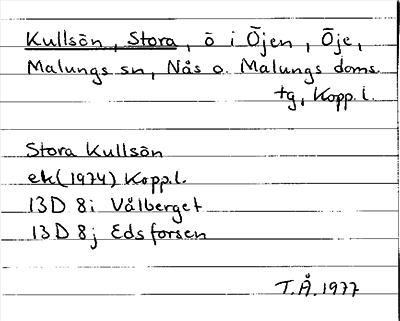 Kullsön, Stora, ö i Öjen, Öje,
Malungs sn, Nås o. Malungs doms.
tg, Kopp. l.
Stora Kullsön
ek (1974) Kopp. l.
13D 8i Vålberget
13D 8j Edsforsen
T.Å. 1977